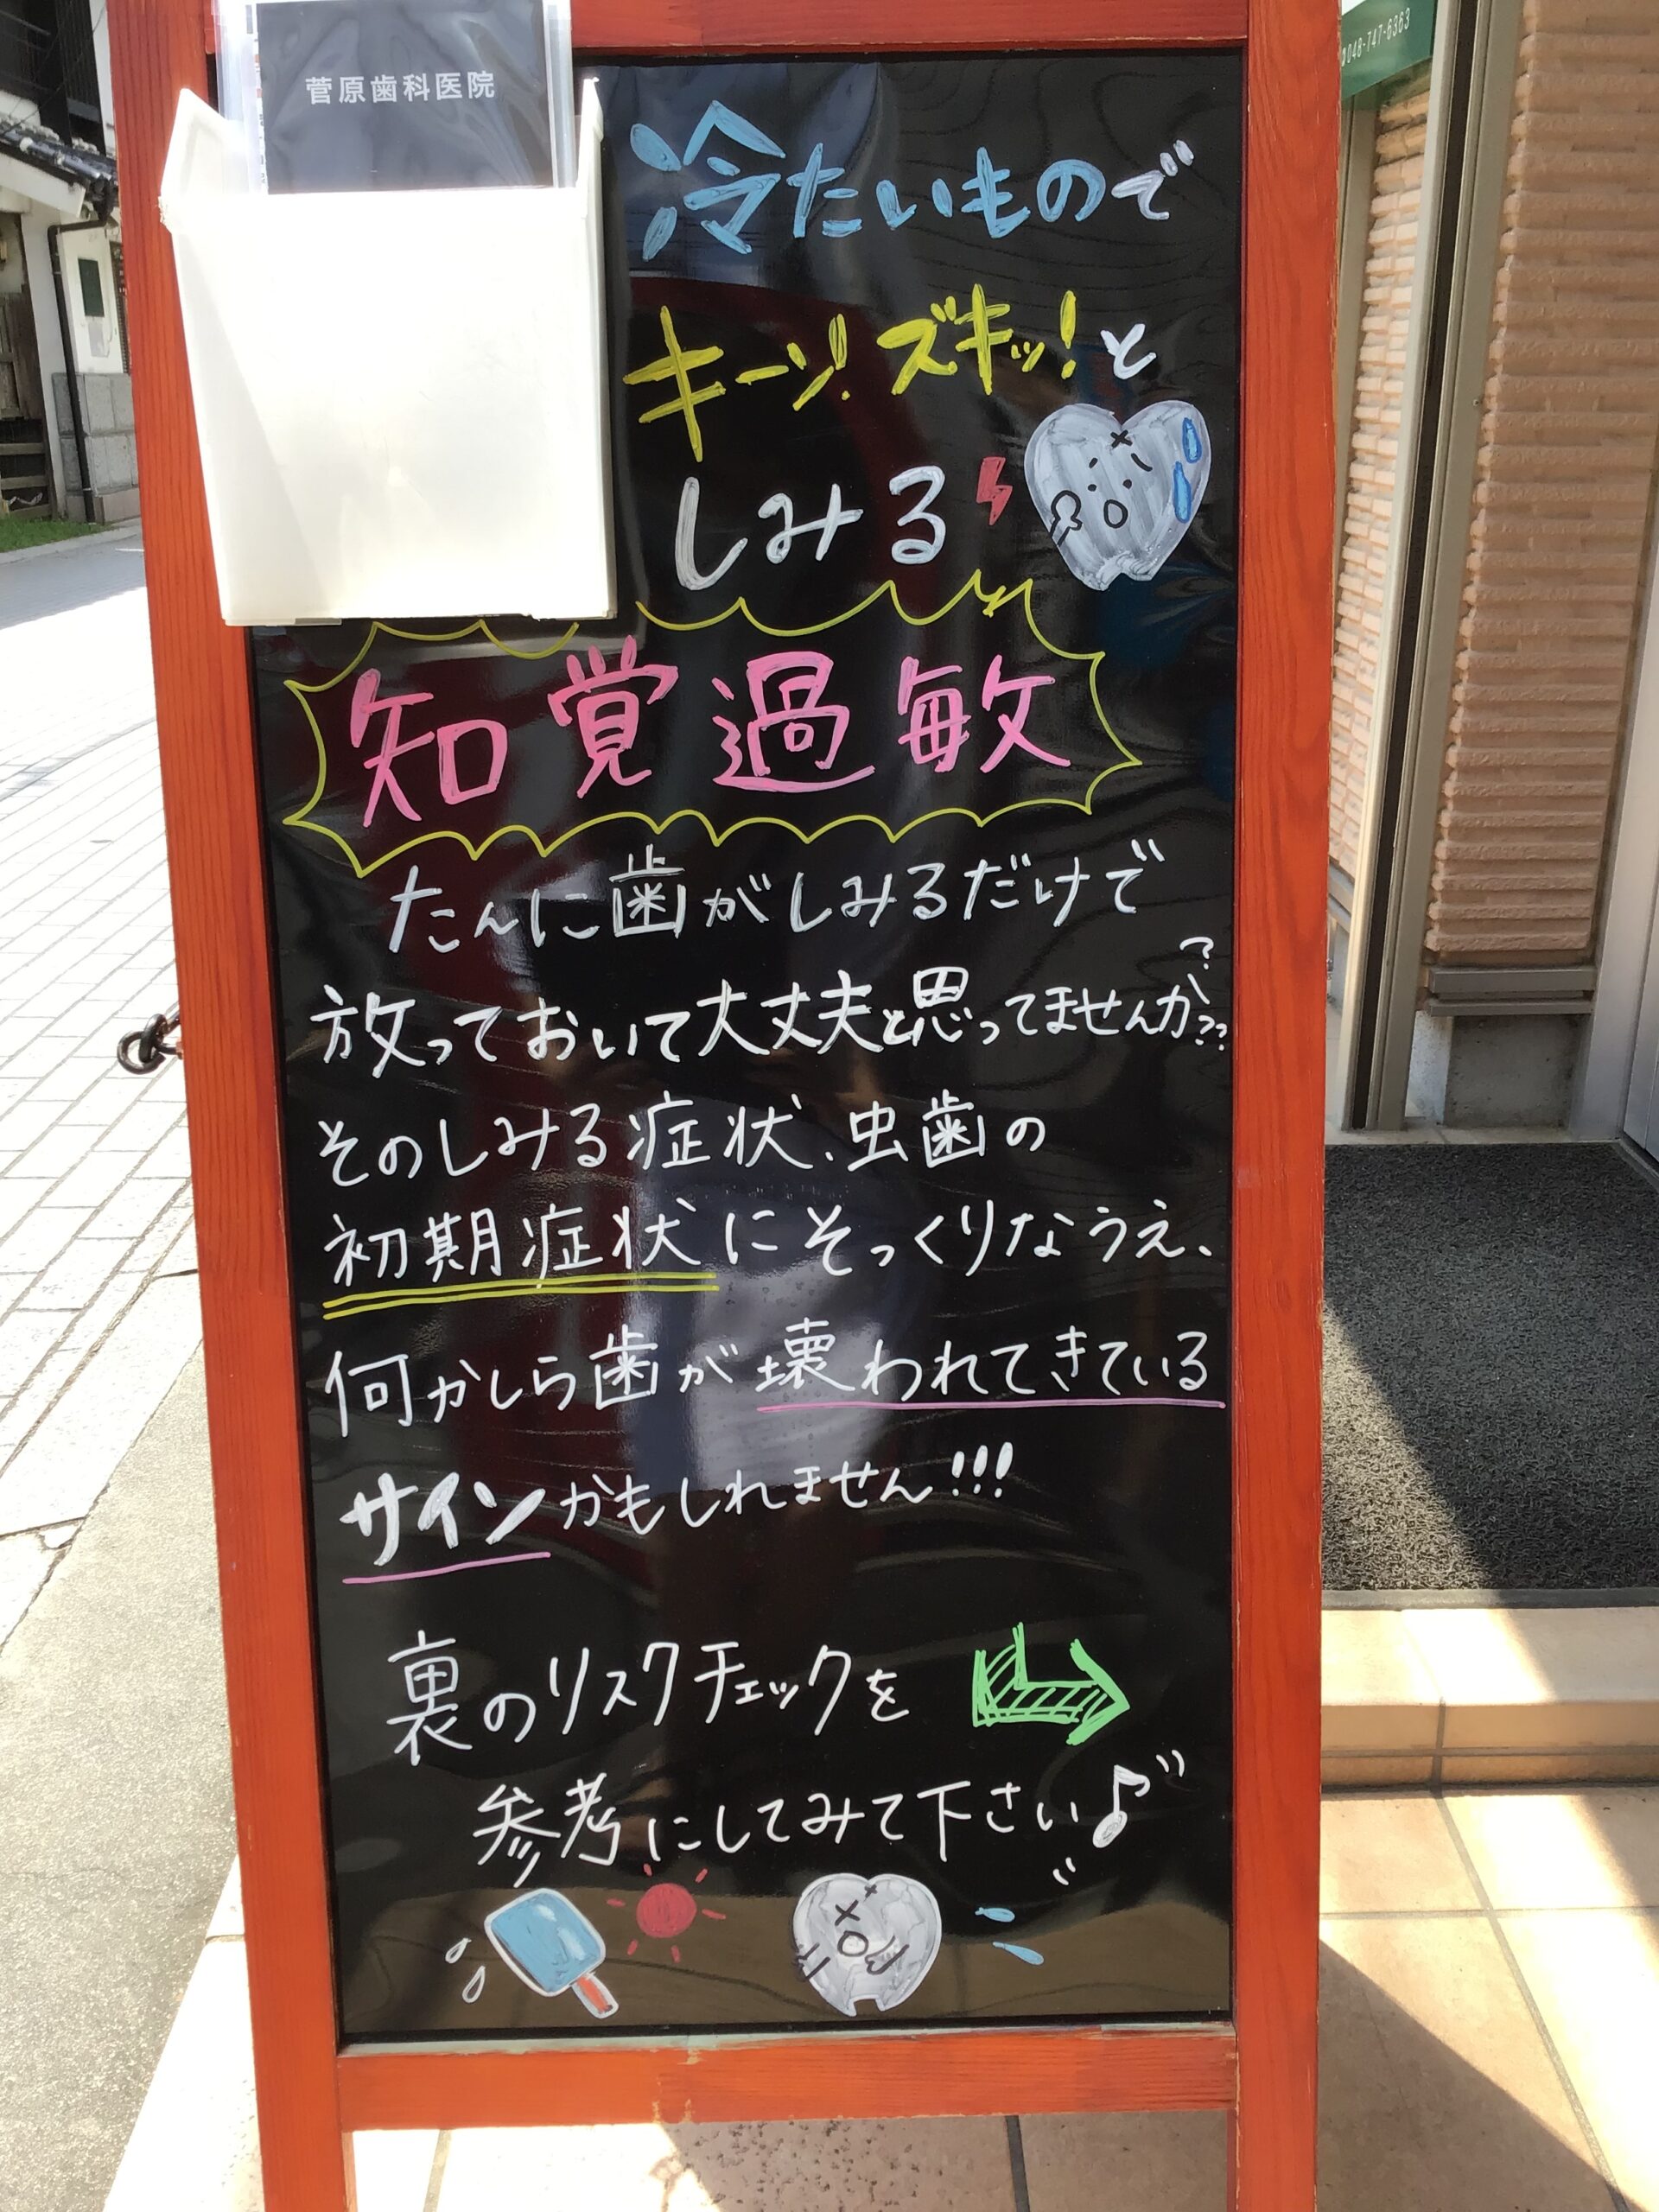 菅原歯科医院
048-747-6363
冷たいもので
キーン!ズキッ!と
しみる
知覚過敏
たんに歯がしみるだけで
放っておいて大丈夫と思ってませんか???
そのしみる症状、虫歯の
初期症状にそっくりなうえ、
何かしら歯が壊われてきている
サインかもしれません!!!
裏のリスクチェックを
参考にしてみて下さい♪